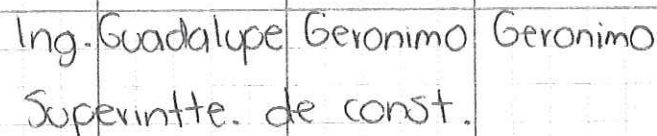 Ing. Guadalupe Geronimo Geronimo
Superintte. de const.